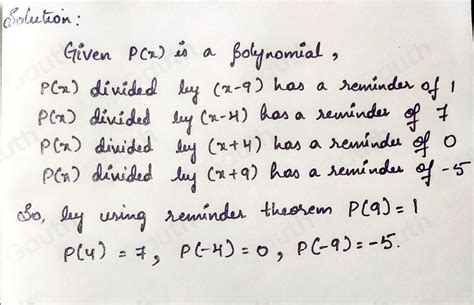 Solution:
Given P(x) is a polynomial,
P(x) divided by (x-9) has a reminder of 1
P(x) divided by (x-4) has a reminder of 7
P(x) divided by (x+4) has a reminder of 0
P(x) divided by (x+9) has a reminder of -5
So, by using reminder theorem P(9)=1
P(4) = 7, P(-4)=0, P(-9)=-5.